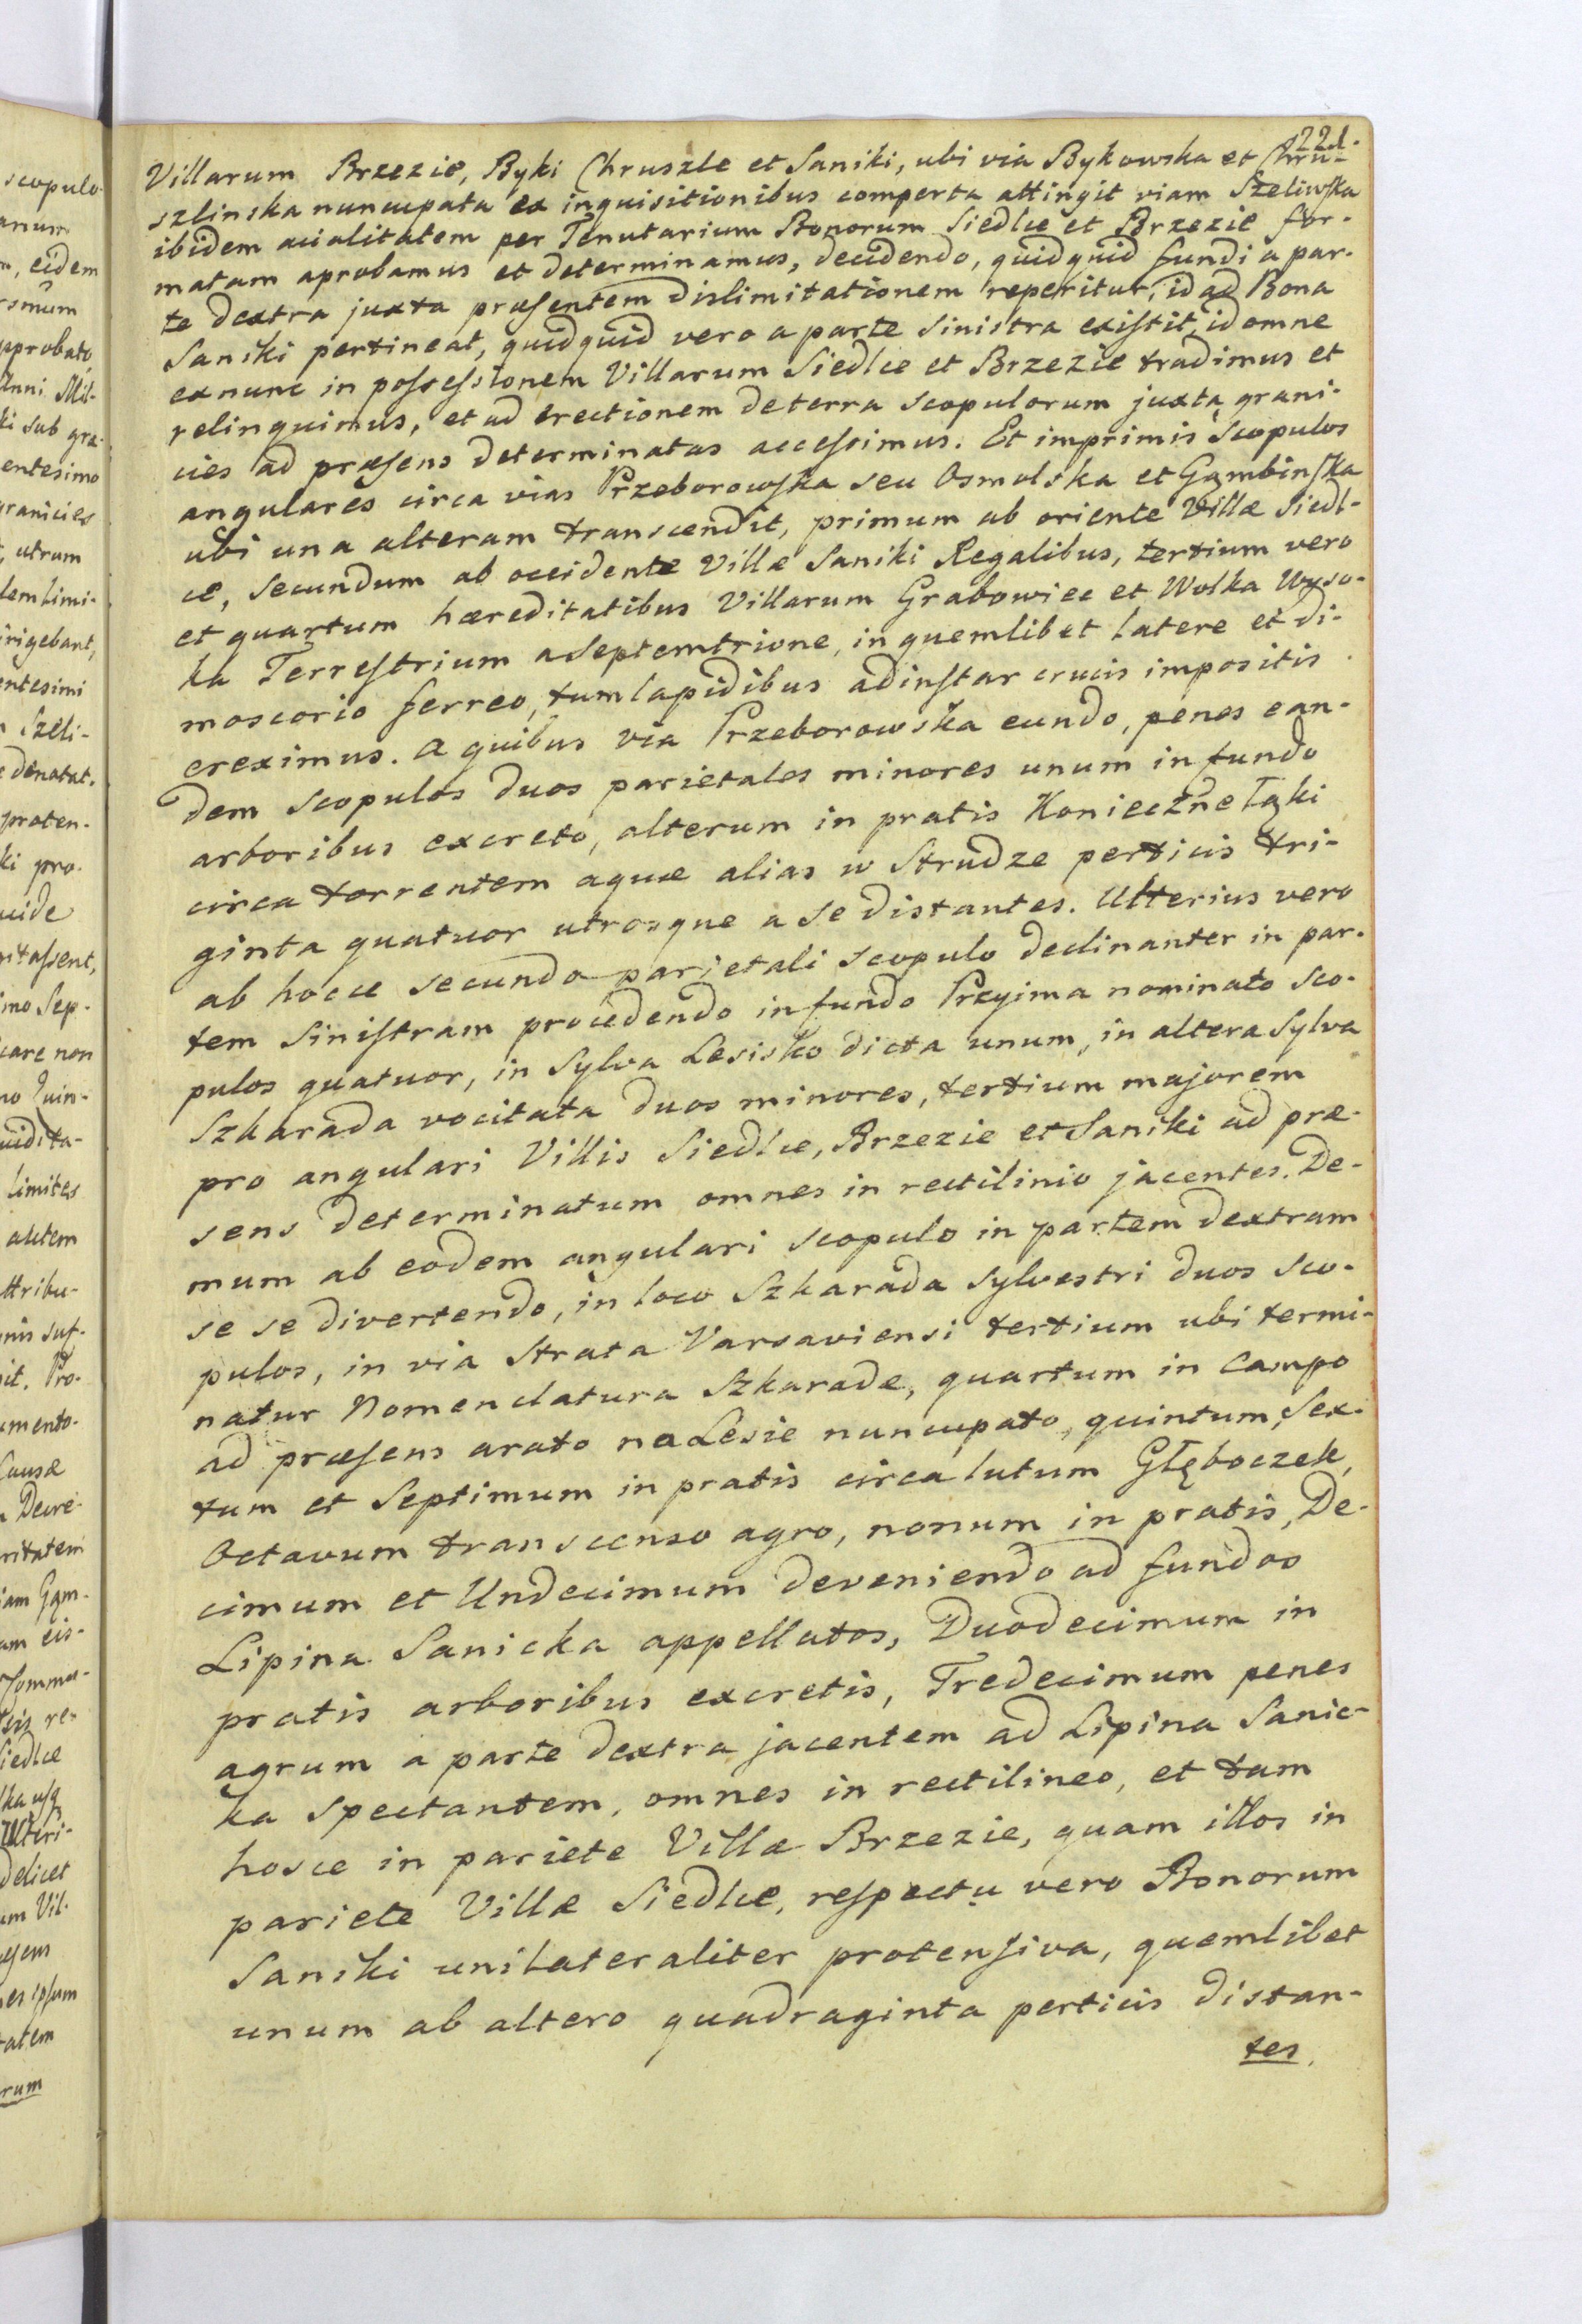 221.
Villarum Brzezie, Byki Chruszle et Saniki, ubi via Bykowska et Chru-
szlinska nuncupata ex inquisitionibus comperta attingit viam Szeliwska
ibidem acialitatem per Tenutarium Bonorum Siedlce et Brzezie for-
matam aprobamus et determinamus, decidendo, quidquid fundi a par-
te dextra juxta præsentem dislimitationem reperitur, id ad Bona
Saniki pertineat, quidquid vero a parte sinistra existit, id omne
ex nunc in possessionem Villarum Siedlce et Brzezie tradimus et
relinquimus, et ad erectionem de terra scopulorum juxta grani-
cies ad præsens determinatas accessimus. Et imprimis scopulos
angulares circa vias Przeborowska seu Osmolska et Gąmbinska
ubi una alteram transcendit, primum ab oriente Villæ Siedl-
ce, secundum ab occidente Villæ Saniki Regalibus, tertium vero
et quartum hæreditatibus Villarum Grabowiec et Wolka Wyso-
ka Terrestrium a Septemtrione, in quemlibet latere et di-
moscorio ferreo, tum lapidibus adinstar crucis impositis
ereximus. A quibus via Przeborowska eundo, penes ean-
dem scopulos duos parietales minores unum in fundo
arboribus excreto, alterum in pratis Konieczne Łąki
circa torrentem aquæ alias w Strudze perticis tri-
ginta quatuor utrosque a se distantes. Ulterius vero
ab hocce secundo parietali scopulo declinanter in par-
tem sinistram procedendo in fundo Przyima nominato sco-
pulos quatuor, in sylva Lesisko dicta unum, in altera sylva
Szkarada vocitata duos minores, tertium majorem
pro angulari Villis Siedlce, Brzezie et Saniki ad præ-
sens determinatum omnes in rectilinio jacentes. De-
mum ab eodem angulari scopulo in partem dextram
se se divertendo, in loco Szkarada sylvestri duos sco-
pulos, in via strata Varsaviensi tertium ubi termi-
natur Nomenclatura Szkaradæ, quartum in Campo
ad præsens arato na Lesie nuncupato, quintum, Sex-
tum et Septimum in pratis circa lutum Głęboczek,
Octavum transcenso agro, nonum in pratis, De-
cimum et Undecimum deveniendo ad fundos
Lipina Sanicka appellatos, Duodecimum in
pratis arboribus excretis, Tredecimum penes
agrum a parte dextra jacentem ad Lipina Sanic-
ka spectantem, omnes in rectilineo, et tam
hosce in pariete Villæ Brzezie, quam illos in
pariete Villæ Siedlce, respectu vero Bonorum
Saniki unilateraliter protensiva, quemlibet
unum ab altero quadraginta perticis distan-
tes.